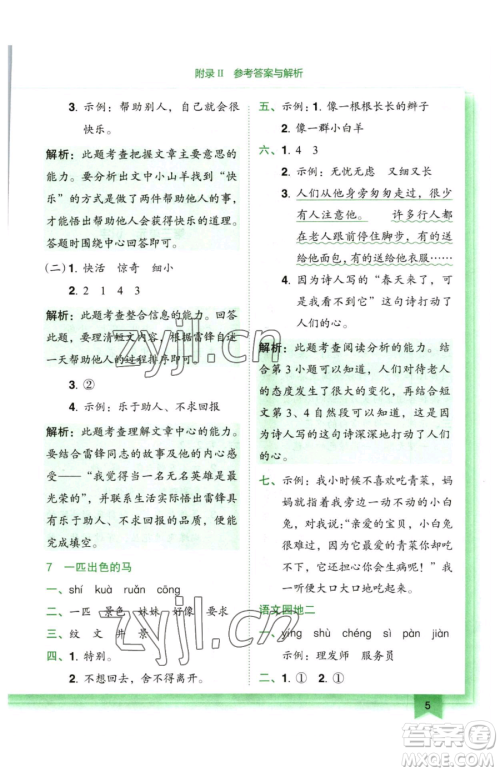 附录Ⅱ 参考答案与解析
3. 示例：帮助别人，自己会很
快乐。
解析：此题考查把握文章主要意思的
能力。要分析出文中小山羊找到“快
乐”的方式是做了两件帮助他人的事，
才能归纳出帮助他人会快乐的道理。
答题时围绕中心回答即可。
(二) 1. 快活 惊奇 细小
2. 2 1 4 3
解析：此题考查整合信息的能力。回答
此题，要理清短文内容，根据雷锋进城
一天帮助他人的过程排序即可。
3. ②
4. 示例：乐于助人、不求回报
解析：此题考查理解文章中心的能力。
要结合雷锋同志的故事及他的内心
感受——“我觉得当一名无名英雄是最
光荣的”，并联系生活实际悟出雷锋
有乐于助人、不求回报的精神，便能
完成填空。
7 一匹出色的马
一、shí kuà ruǎn cōng
二、一匹 景色 妹妹 好像 要求
三、纹 文 井 景
四、1. 特别。
2. 示例：舍不得离开。
五、示例：1. 像一根根长长的辫子
2. 像一群小白羊
六、1. 4 3
2. 示例：无忧无虑 又细又长
3. 人们从他身旁匆匆走过，很
少有人注意他。 许多行人都
在老人跟前停下来，有的送给
他面包，有的送给他衣服……
4. 因为诗人写的“春天来了，可
是……”这句诗打动了行人
们的心。
解析：此题考查阅读分析的能力。结
合第3小题可以知道，人们对待老人
的态度发生了很大的变化。结合短
文第3、4自然段可以知道，是因为诗
人写的这句诗深深地打动了行人
的心。
七、示例：我小时候不喜欢吃青菜，妈
妈对我说：“你是一只可爱的小白
兔。”“亲爱的宝贝，小白
你，它担心你会生病呢！”我
一听便大口大口地吃青菜。
语文园地二
一、yíng shù chéng sì pàn jiàn
示例：理发师 服务员
二、1. ① 2. ①
5
zyjl.cn
zyjl.cn
答案圈
MXQE.COM